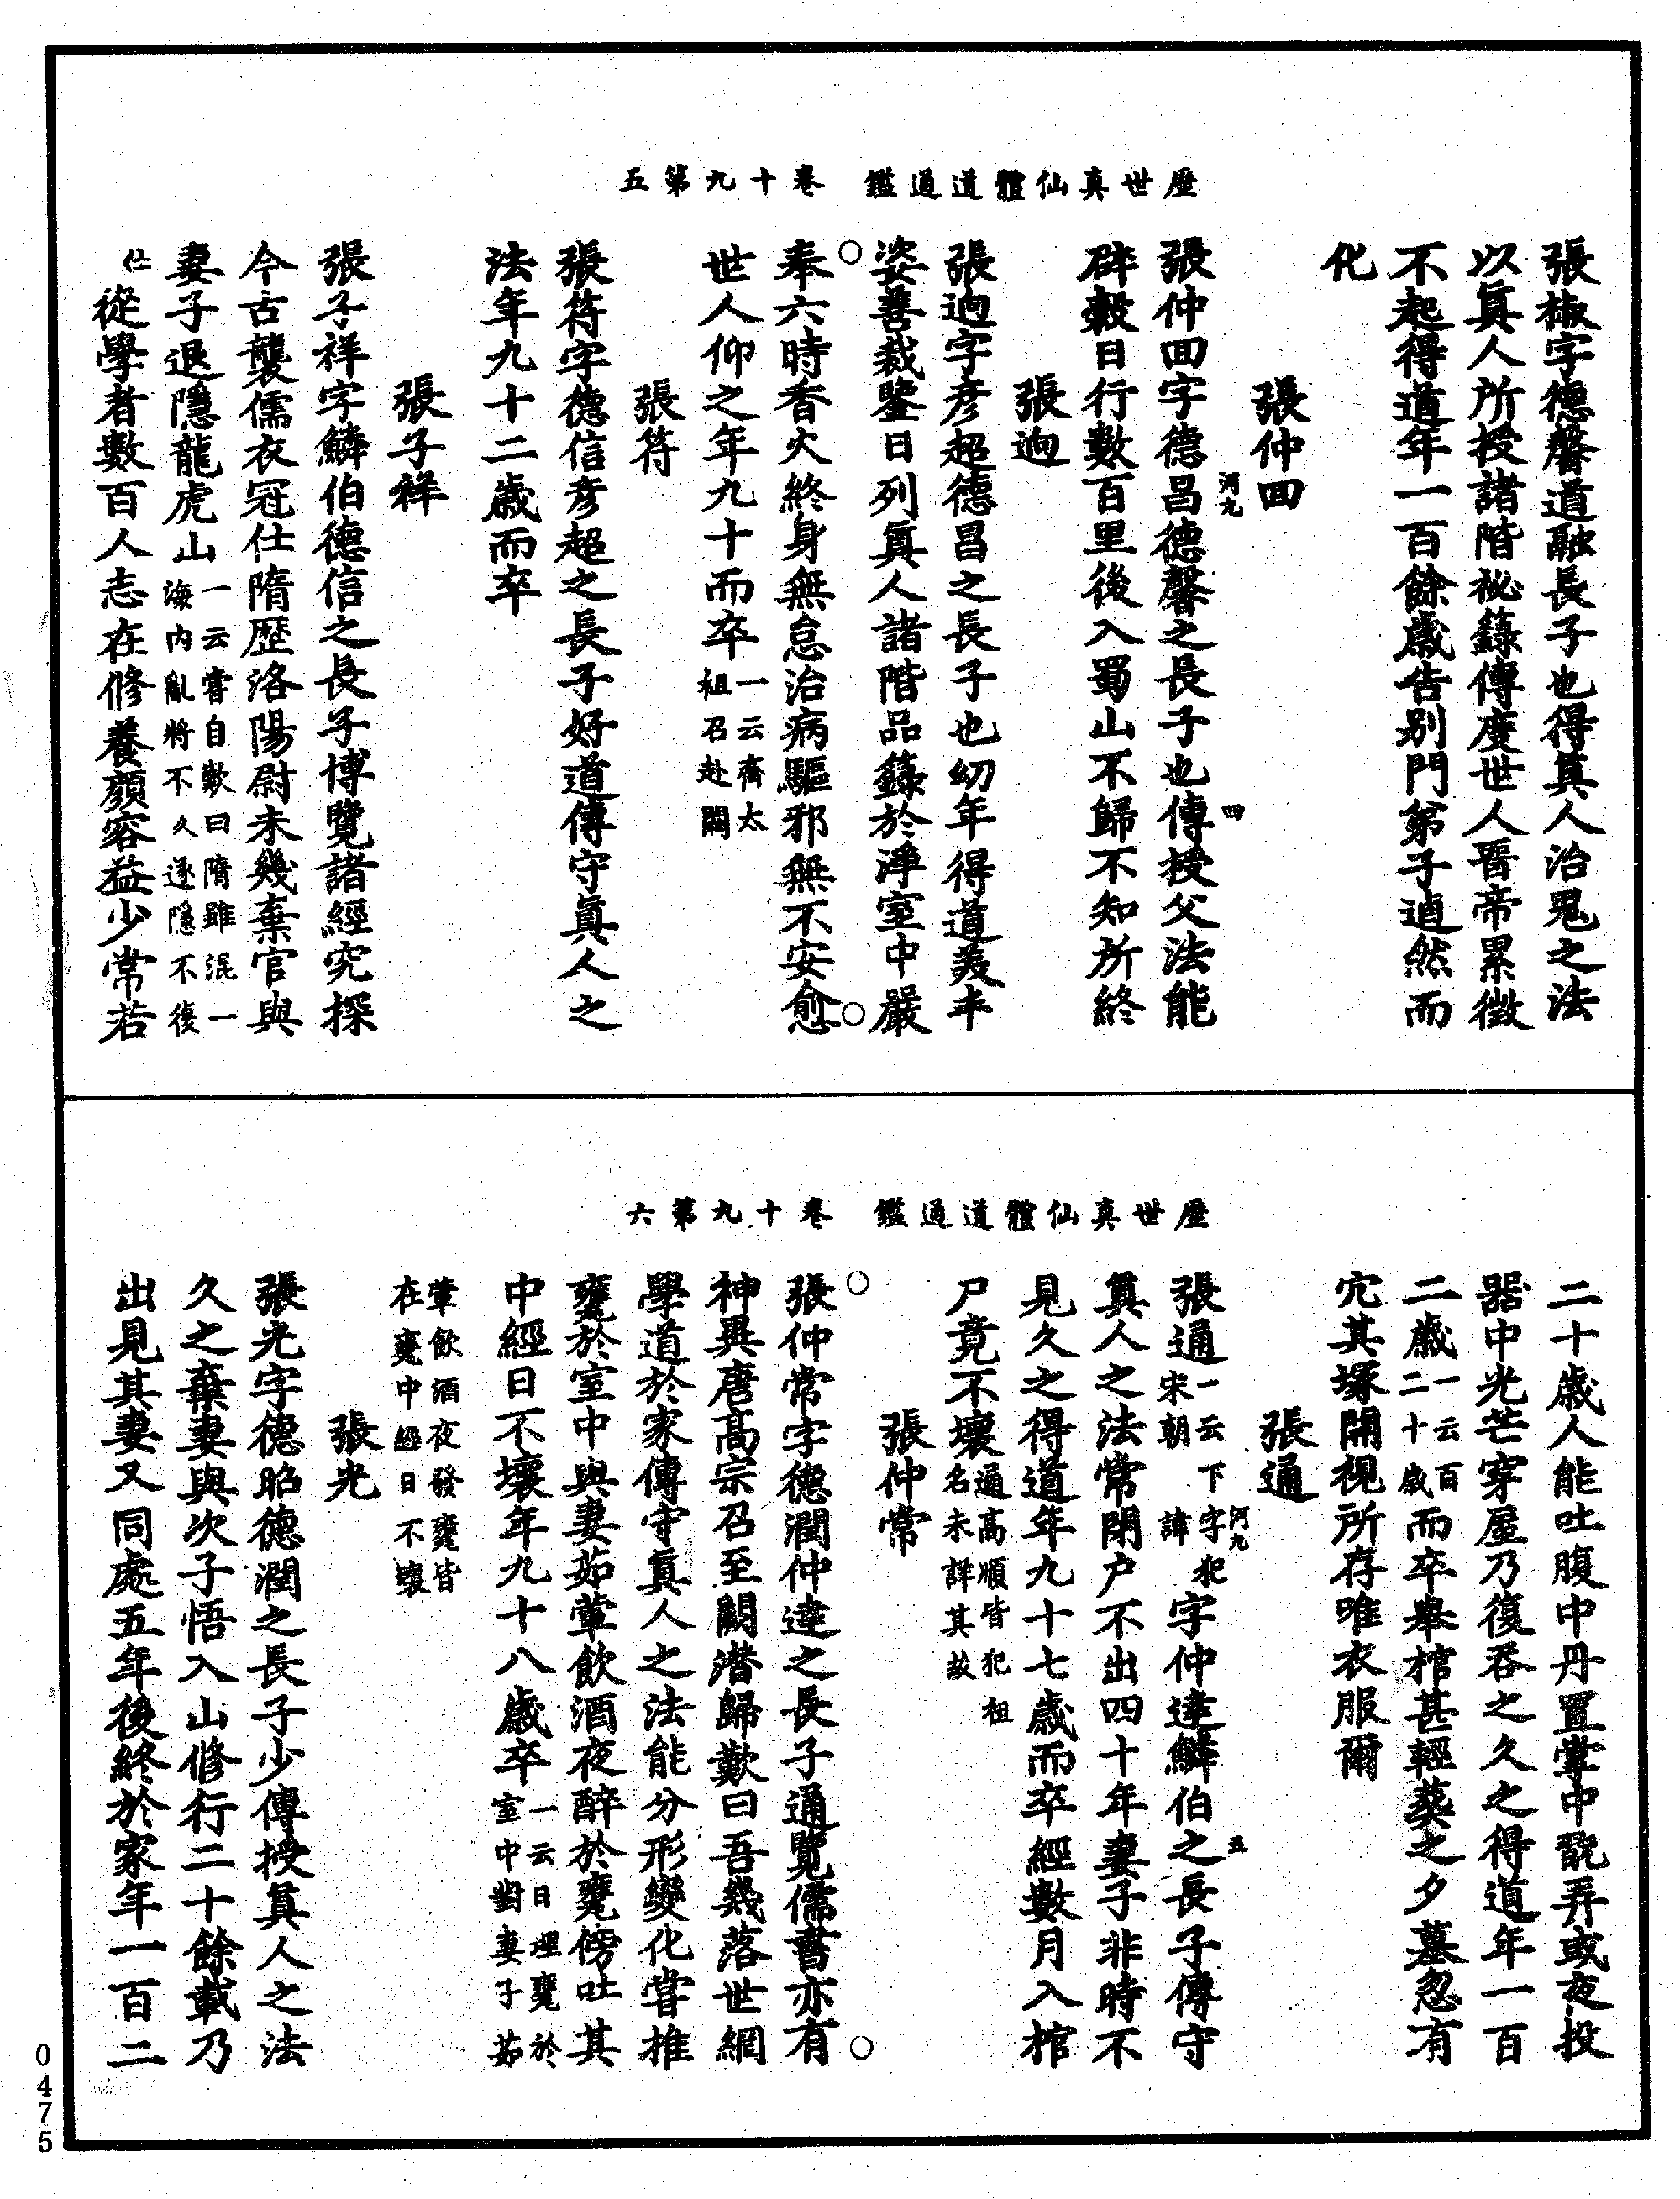 歷世真仙體道通鑑　卷十九第五
張椒字德馨道融長子也得真人治鬼之法
以真人所授諸階祕籙傳度世人晉帝累徵
不起得道年一百餘歲告別門弟子逌然而
化
張仲回
河九
四
張仲回字德昌德馨之長子也傳授父法能
辟穀日行數百里後入蜀山不歸不知所終
張迥
張迥字彥超德昌之長子也幼年得道美丰
姿善裁鑒日列真人諸階品籙於淨室中嚴
奉六時香火終身無怠治病驅邪無不安愈
世人仰之年九十而卒一云齊太祖召赴闕
張符
張符字德信彥超之長子好道傳守真人之
法年九十二歲而卒
張子祥
張子祥字鱗伯德信之長子博覽諸經究探
今古襲儒衣冠仕隋歷洛陽尉未幾棄官與
妻子退隱龍虎山一云嘗自歎曰隋雖混一海內亂將不久遂隱不復
仕從學者數百人志在修養顏容益少常若
歷世真仙體道通鑑　卷十九第六
二十歲人能吐腹中丹置掌中翫弄或夜投
器中光芒穿屋乃復吞之久之得道年一百
二歲一云百二十歲而卒舉棺甚輕葬之夕墓忽有
穴其塚開視所存唯衣服爾
張通
河九
五
張通一云下字犯宋朝諱字仲達鱗伯之長子傳守
真人之法常閉户不出四十年妻子非時不
見久之得道年九十七歲而卒經數月入棺
尸竟不壞通高順皆犯祖名未詳其故
張仲常
張仲常字德潤仲達之長子通覽儒書亦有
神異唐高宗召至闕潜歸歎曰吾幾落世網
學道於家傳守真人之法能分形變化嘗推
甕於室中與妻茹葷飲酒夜醉於甕傍吐其
中經日不壞年九十八歲卒一云日埋甕於室中對妻子茹
葷飲酒夜發甕皆在甕中經日不壞
張光
張光字德昭德潤之長子少傳授真人之法
久之棄妻與次子悟入山修行二十餘載乃
出見其妻又同處五年後終於家年一百二
0475